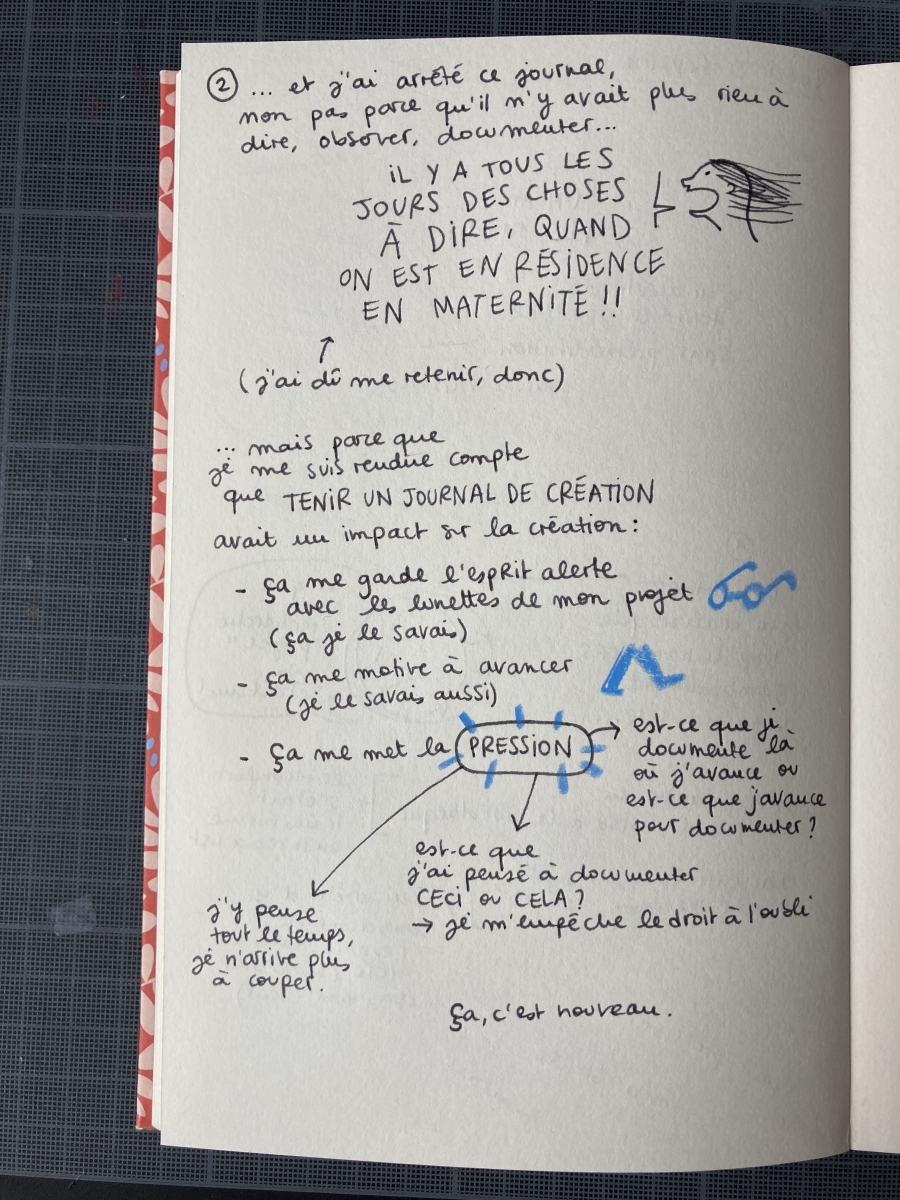 2 ... et j'ai arrêté ce journal,
non pas parce qu'il n'y avait plus rien à
dire, observer, documenter...
iL Y A TOUS LES
JOURS DES CHOSES
À DiRE, QUAND
ON EST EN RÉSiDENCE
EN MATERNiTÉ !!
(j'ai dû me retenir, donc)
... mais parce que
je me suis rendue compte
que TENiR UN JOURNAL DE CRÉATiON
avait un impact sur la création :
- ça me garde l'esprit alerte
avec les lunettes de mon projet
(ça je le savais)
- ça me motive à avancer
(je le savais aussi)
- ça me met la PRESSiON
est-ce que je
documente là
où j'avance ou
est-ce que j'avance
pour documenter ?
est-ce que
j'ai pensé à documenter
CECi OU CELA ?
→ je m'empêche le droit à l'oubli
j'y pense
tout le temps,
je n'arrive plus
à couper.
ça, c'est nouveau.